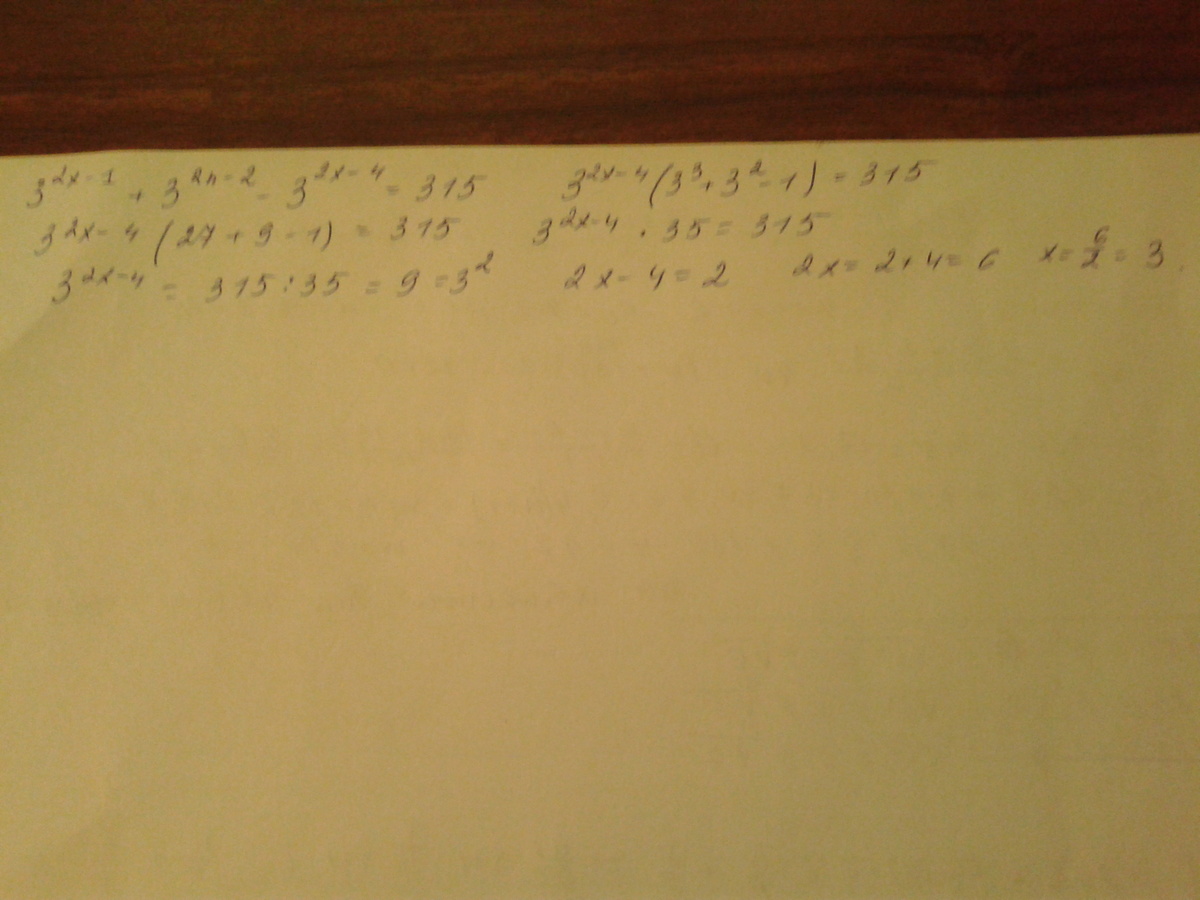 3^{2x-1} + 3^{2x-2} - 3^{2x-4} = 315   3^{2x-4}(3^3 + 3^2 - 1) = 315
3^{2x-4}(27 + 9 - 1) = 315   3^{2x-4} · 35 = 315
3^{2x-4} = 315 : 35 = 9 = 3^2   2x - 4 = 2   2x = 2 + 4 = 6   x = \frac{6}{2} = 3.